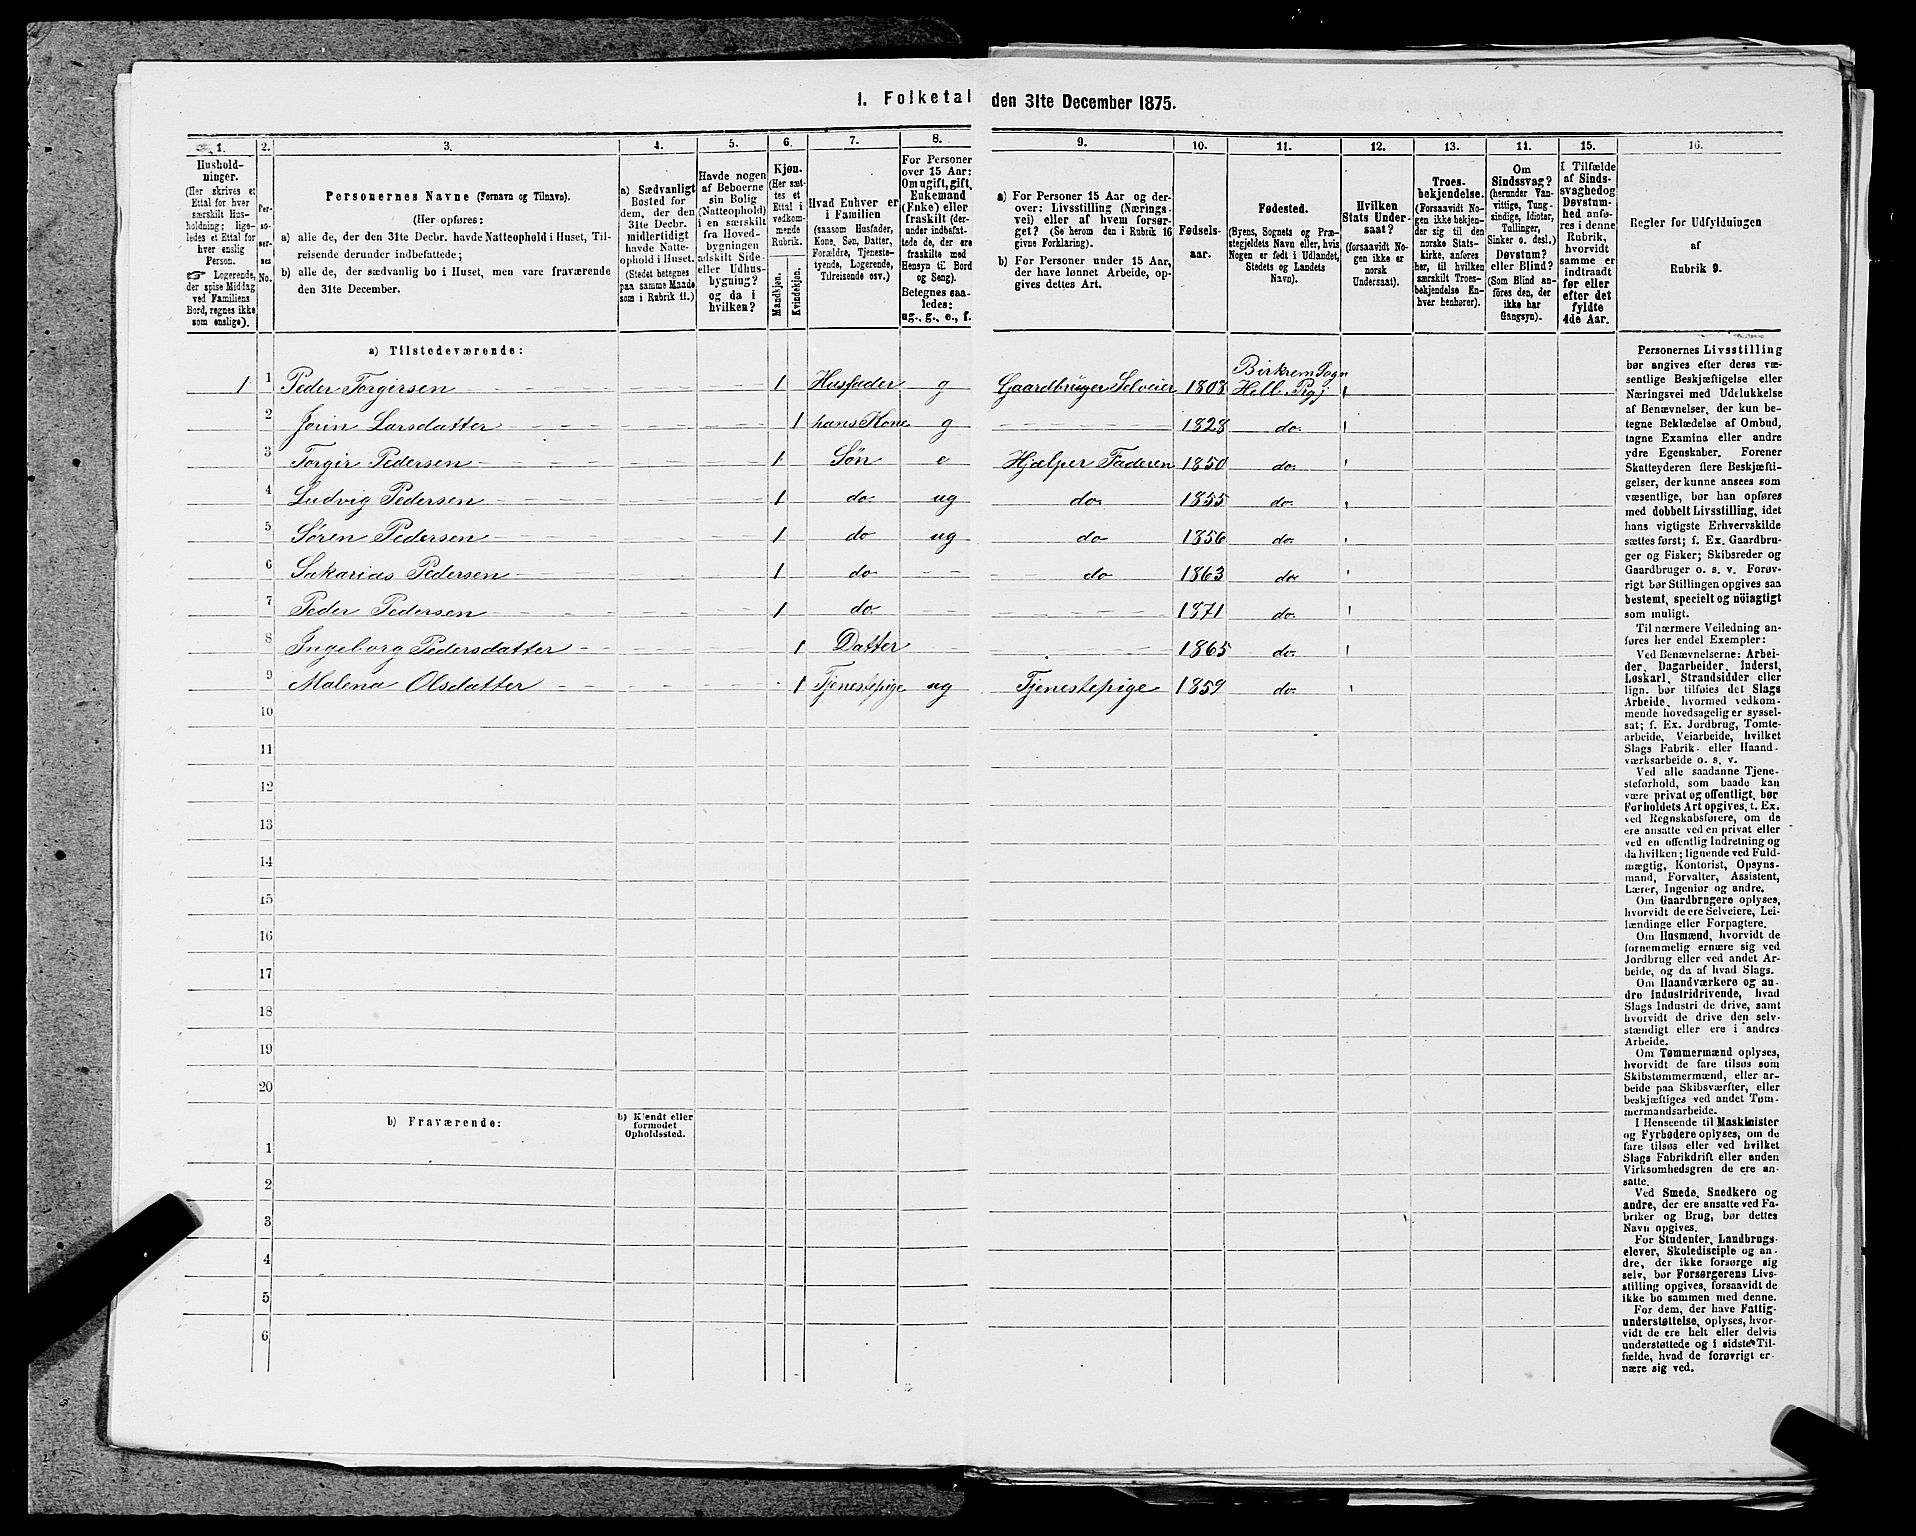 1. Folketal den 31te December 1875.
1. 2. 3. 4. 5. 6. 7. 8. 9. 10. 11. 12. 13. 14. 15. 16.
Hushold-
ninger.
(Her skrives et
Ettal for hver
særskilt Hus-
holdning; lige-
ledes et Ettal for
hver enslig
Person.
☞ Logerende,
der spise Middag
ved Familiens
Bord, regnes ikke
som enslige).
Per-
so-
ner-
nes
No.
Personernes Navne (Fornavn og Tilnavn).
(Her opføres:
a) alle de, der den 31te Decbr. havde Natteophold i Huset, Til-
reisende derunder indbefattede;
b) alle de, der sædvanlig bo i Huset, men vare fraværende
den 31te December.
a) Sædvanligt
Bosted for
dem, der den
31te Decbr.
midlertidigt
havde Natte-
ophold i Huset.
(Stedet betegnes
paa samme Maade
som i Rubrik 11.)
Havde nogen
af Beboerne
sin Bolig
(Natteophold)
i en særskilt
fra Hoved-
bygningen
adskilt Side-
eller Udhus-
bygning?
og da i
hvilken?
Kjøn.
(Her sæt-
tes et
Ettal i
vedkom-
mende
Rubrik.
Mandkjøn.
Kvindekjøn.
Hvad Enhver er
i Familien
(saasom Husfader,
Kone, Søn, Datter,
Forældre, Tjeneste-
tyende, Logerende,
Tilreisende osv.)
For Personer
over 15 Aar:
Om ugift, gift,
Enkemand
(Enke) eller
fraskilt (der-
under indbefat-
tede de, der ere
fraskilte med
Hensyn til Bord
og Seng).
Betegnes saa-
ledes:
ug., g., e., f.
a) For Personer 15 Aar og der-
over: Livsstilling (Nærings-
vei) eller af hvem forsør-
get? (Se herom den i Rubrik 16
givne Forklaring).
b) For Personer under 15 Aar,
der have lønnet Arbeide, op-
gives dettes Art.
Fødsels-
aar.
Fødested.
(Byens, Sognets og Præ-
stegjeldets Navn eller, hvis
Nogen er født i Udlandet,
Stedets og Landets
Navn).
Hvilken
Stats Under-
saat?
(forsaavidt No-
gen ikke er
norsk
Undersaat).
Troes-
bekjendelse.
(Forsaavidt No-
gen ikke bekjen-
der sig til den
norske Stats-
kirke, anføres
her, til hvilken
særskilt Troes-
bekjendelse En-
hver henhører).
Om
Sindssvag?
(herunder Van-
vittige, Tung-
sindige, Idioter,
Tullinger,
Sinker o. desl.).
Døvstum?
eller Blind?
(Som Blind an-
føres den, der
ikke har
Gangsyn).
I Tilfælde
af Sinds-
svaghed og
Døvstum-
hed anfø-
res i denne
Rubrik,
hvorvidt
samme er
indtraadt
før eller
efter det
fyldte
4de Aar.
Regler for Udfyldningen
af
Rubrik 9.
a) Tilstedeværende:
1 1 Peder Torgirsen 1 Husfader g Gaardbruger Selveier 1808 Birkrem Sogn Hell. Prgj
2 Larsdatter 1 hans Kone g 1828 do.
3 Torgir Pedersen 1 Søn e Hjælper Faderen 1850 do.
4 Ludvig Pedersen 1 do. ug do. 1855 do.
5 Søren Pedersen 1 do ug do 1856 do.
6 Sakarias Pedersen 1 do. do 1863 do
7 Peder Pedersen 1 do. 1871 do.
8 Ingeborg Pedersdatter 1 Datter 1865 do.
9 Malena Olsdatter 1 Tjenestepige ug Tjenestepige 1859 do.
10
11
12
13
14
15
16
17
18
19
20
b) Fraværende:
b) Kjendt eller
formodet
Opholdssted.
1
2
3
4
5
6
Personernes Livsstilling
bør angives efter deres væ-
sentlige Beskjæftigelse eller
Næringsvei med Udelukkelse
af Benævnelser, der kun be-
tegne Beklædelse af Ombud,
tagne Examina eller andre
ydre Egenskaber. Forener
Skatteyderen flere Beskjæfti-
gelser, der kunne ansees som
væsentlige, bør han opføres
med dobbelt Livsstilling, idet
hans vigtigste Erhvervskilde
sættes først; f. Ex. Gaardbru-
ger og Fisker; Skibsreder og
Gaardbruger o. s. v. Forøv-
rigt bør Stillingen opgives saa
bestemt, specielt og nöiagtigt
som muligt.
Til nærmere Veiledning an-
føres her endel Exempler:
Ved Benævnelserne: Arbei-
der, Dagarbeider, Inderst,
Løskarl, Strandsidder eller
lign. bør tilføies det Slags
Arbeide, hvormed vedkom-
mende hovedsagelig er syssel-
sat; f. Ex. Jordbrug, Tomte-
arbeide, Veiarbeide, hvilket
Slags Fabrik- eller Haand-
værksarbeide o. s. v.
Ved alle saadanne Tjene-
steforhold, som baade kan
være privat og offentligt, bør
Forholdets Art opgives, t. Ex.
ved Regnskabsførere, om de
ere ansatte ved en privat eller
ved en offentlig Indretning og
da hvilken; lignende ved Fuld-
mægtig, Kontorist, Opsyns-
mand, Forvalter, Assistent,
Lærer, Ingeniør og andre.
Om Gaardbrugere oplyses,
hvorvidt de ere Selveiere, Lei-
lændinge eller Forpagtere.
Om Husmænd, hvorvidt de
fornemmelig ernære sig ved
Jordbrug eller ved andet Ar-
beide, og da af hvad Slags.
Om Haandværkere og an-
dre Industridrivende, hvad
Slags Industri de drive, samt
hvorvidt de drive den selv-
stændigt eller ere i andres
Arbeide.
Om Tømmermænd oplyses,
hvorvidt de fare tilsøs som
Skibstømmermænd, eller ar-
beide paa Skibsværfter, eller
beskjæftiges ved andet Tøm-
mermandsarbeide.
I Henseende til Maskinister
og Fyrbødere oplyses, om de
fare tilsøs eller ved hvilket
Slags Fabrikdrift eller anden
Virksomhedsgren de ere an-
satte.
Ved Smede, Snedkere og
andre, der ere ansatte ved Fa-
briker og Brug, bør dettes
Navn opgives.
For Studenter, Landbrugs-
elever, Skoledisciple og an-
dre, der ikke forsørge sig
selv, bør Forsørgerens Livs-
stilling opgives, forsaavidt de
ikke bo sammen med denne.
For dem, der have Fattig-
understøttelse, oplyses, hvor-
vidt de ere helt eller delvis
understøttede og i sidste Til-
fælde, hvad de forøvrigt er-
nære sig ved.